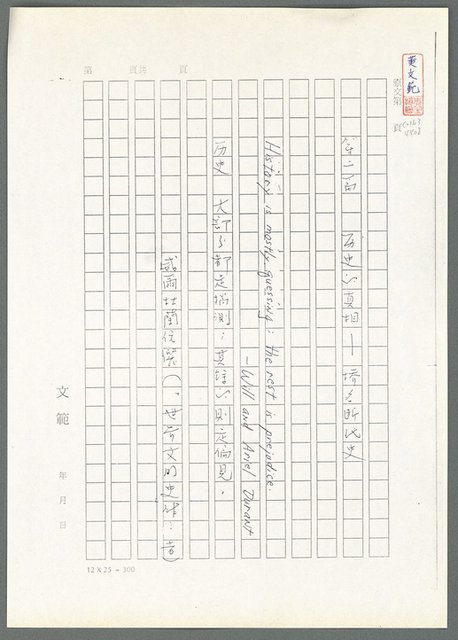 黃文範
原文第 頁
第 頁共 頁
第二面 历史的真相—塔克昕代史
History is mostly guessing; the rest is prejudice.
—Will and Ariel Durant
历史 大部分都是揣測；其餘的則是偏見。
威爾杜蘭伉儷(
文範 年 月 日
12 X 25 = 300